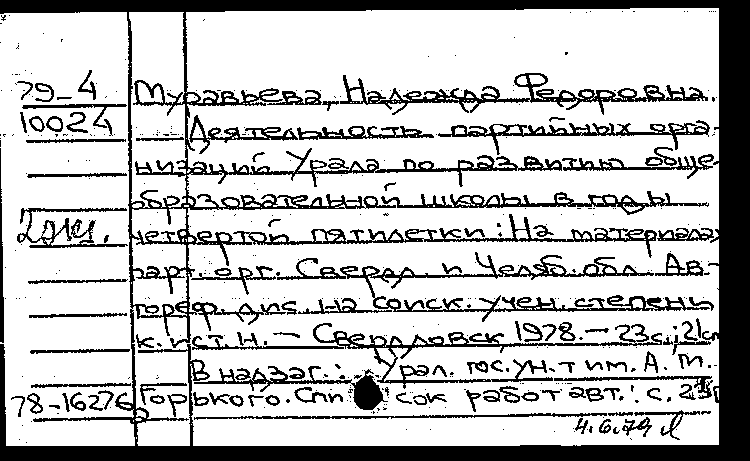 79-4 Муравьева, Надежда Федоровна.
10024 Деятельность партийных орга-
низаций Урала по развитию обще-
образовательной школы в годы
2 экз. четвертой пятилетки: На материалах
парт. орг. Свердл. и Челяб. обл. Ав-
тореф. дис. на соиск. учен. степени
к. ист. н. — Свердловск, 1978. — 23 с.; 21 см
В надзаг.: Урал. гос. ун-т им. А. М.
78-16276 Горького. Список работ авт.: с. 23
4.6.79